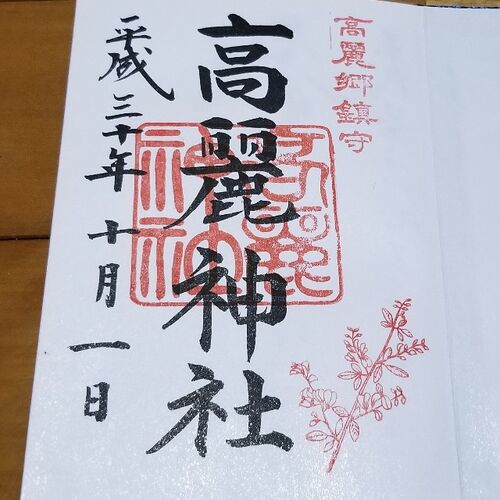 高麗郷鎮守
高麗神社
平成三十年十月一日